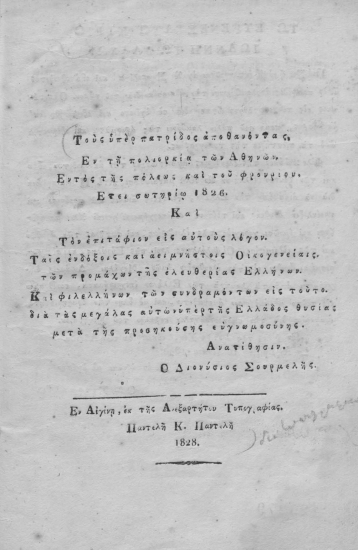 Τοὺς ὑπὲρ πατρίδος ἀποθανόντας,
Εν τῇ πολιορκίᾳ τῶν Αθηνῶν,
Εντὸς τῆς πόλεως καὶ τοῦ φρουρίου,
Ετει σωτηρίῳ 1826.
Καὶ
Τὸν ἐπιτάφιον εἰς αὐτοὺς λόγον.
Ταῖς ἐνδόξοις καὶ ἀειμνήστοις Οἰκογενείαις,
τῶν προμάχων τῆς ἐλευθερίας Ελλήνων.
Καὶ φιλελλήνων τῶν συνδραμόντων εἰς τοῦτο.
διὰ τὰς μεγάλας αὐτῶν ὑπὲρ τῆς Ελλάδος θυσίας
μετὰ τῆς προσηκούσης εὐγνωμοσύνης.
Ανατίθησιν.
Ο Διονύσιος Σουρμελῆς.
Εν Αἰγίνῃ, ἐκ τῆς Ανεξαρτήτου Τυπογραφίας.
Παντελῆ Κ. Παντελῆ
1828.